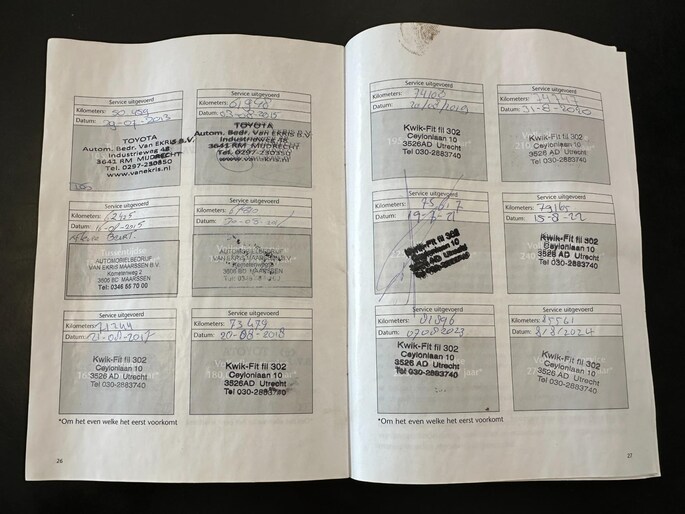 Service uitgevoerd
Kilometers: 50.459
Datum: 29-07-2013
TOYOTA
Autom. Bedr. Van EKRIS B.V.
Industrieweg 48
3641 RM MIJDRECHT
Tel. 0297-250350
www.vanekris.nl
Service uitgevoerd
Kilometers:
Datum: 03-08-2015
TOYOTA
Autom. Bedr. Van EKRIS B.V.
Industrieweg 48
3641 RM MIJDRECHT
Tel. 0297-250350
www.vanekris.nl
Service uitgevoerd
Kilometers:
Datum:
AUTOMOBIELBEDRIJF
VAN EKRIS MAARSSEN B.V.
Kometenweg 2
3605 BC MAARSSEN
Tel: 0346 55 70 00
Service uitgevoerd
Kilometers:
Datum:
AUTOMOBIELBEDRIJF
VAN EKRIS MAARSSEN B.V.
Kometenweg 2
MAARSSEN
Service uitgevoerd
Kilometers: 71244
Datum: 21-08-2017
Kwik-Fit fil 302
Ceylonlaan 10
3526 AD Utrecht
Tel 030-2883740
Service uitgevoerd
Kilometers: 73 479
Datum: 20-08-2018
Kwik-Fit fil 302
Ceylonlaan 10
3526AD Utrecht
Tel 030-2883740
*Om het even welke het eerst voorkomt
26
Service uitgevoerd
Kilometers: 74100
Datum:
Kwik-Fit fil 302
Ceylonlaan 10
3526AD Utrecht
Tel 030-2883740
Service uitgevoerd
Kilometers:
Datum: 31-8-2020
Kwik-Fit fil 302
Ceylonlaan 10
3526AD Utrecht
Tel 030-2883740
Service uitgevoerd
Kilometers: 75617
Datum: 19-7-21
Kwik-Fit fil 302
Ceylonlaan 10
Service uitgevoerd
Kilometers: 79165
Datum: 15-8-22
Kwik-Fit fil 302
Ceylonlaan 10
3526 AD Utrecht
Tel 030-2883740
Service uitgevoerd
Kilometers: 81896
Datum: 07082023
Kwik-Fit fil 302
Ceylonlaan 10
3526 AD Utrecht
Tel 030-2883740
Service uitgevoerd
Kilometers: 85561
Datum: 8/8/2024
Kwik-Fit fil 302
Ceylonlaan 10
3526 AD Utrecht
Tel 030-2883740
*Om het even welke het eerst voorkomt
27